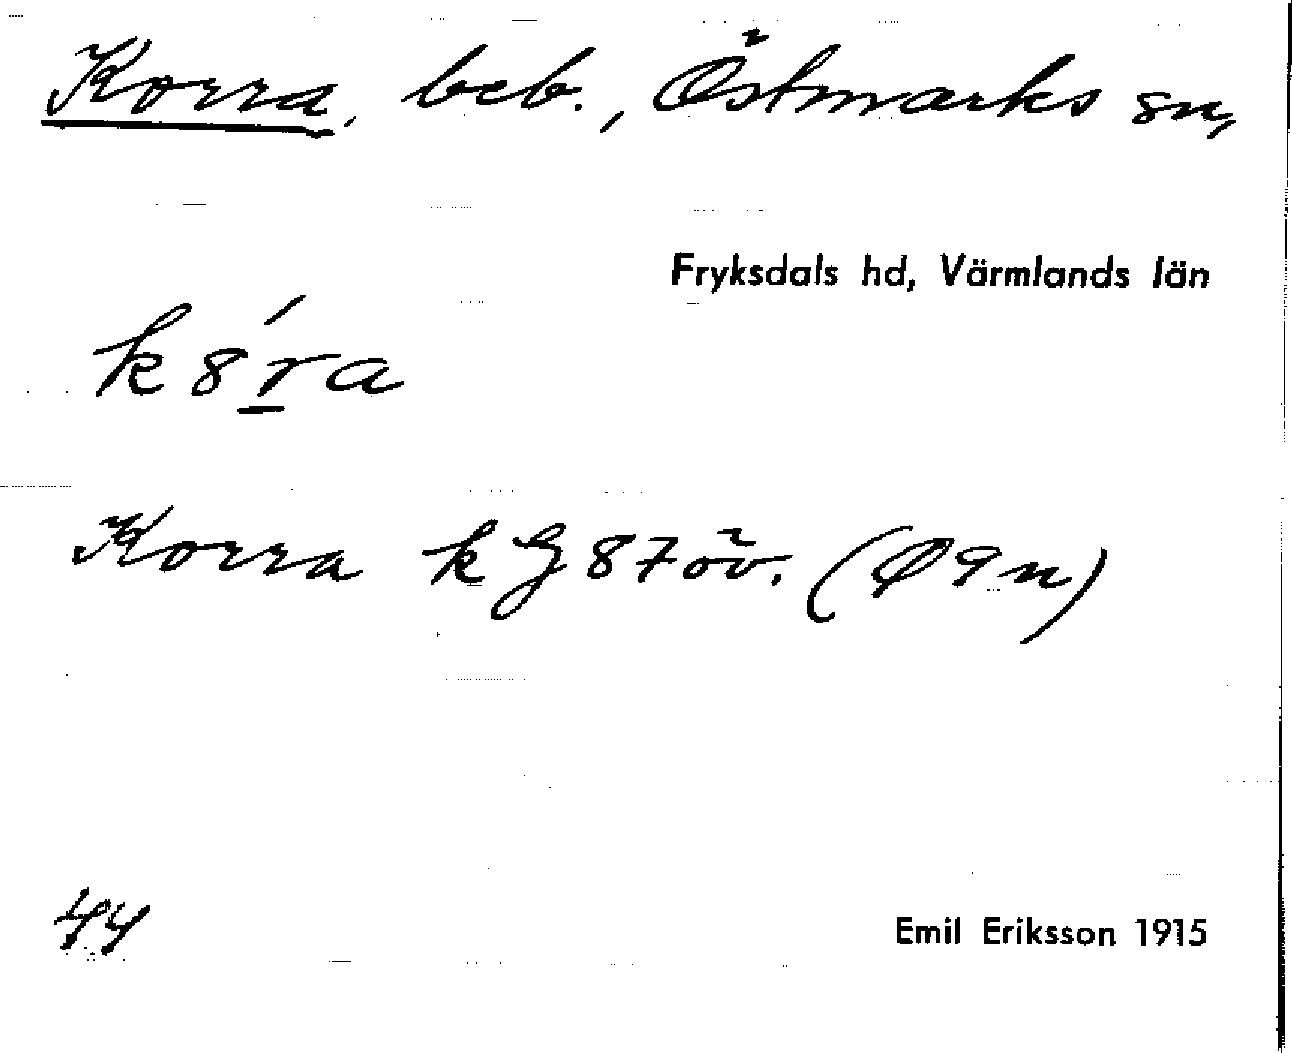 Korra, beb., Östmarks sn,
Fryksdals hd, Värmlands län
k8́r̲a
Korra k G 87 öv. (Ø9n)
44
Emil Eriksson 1915